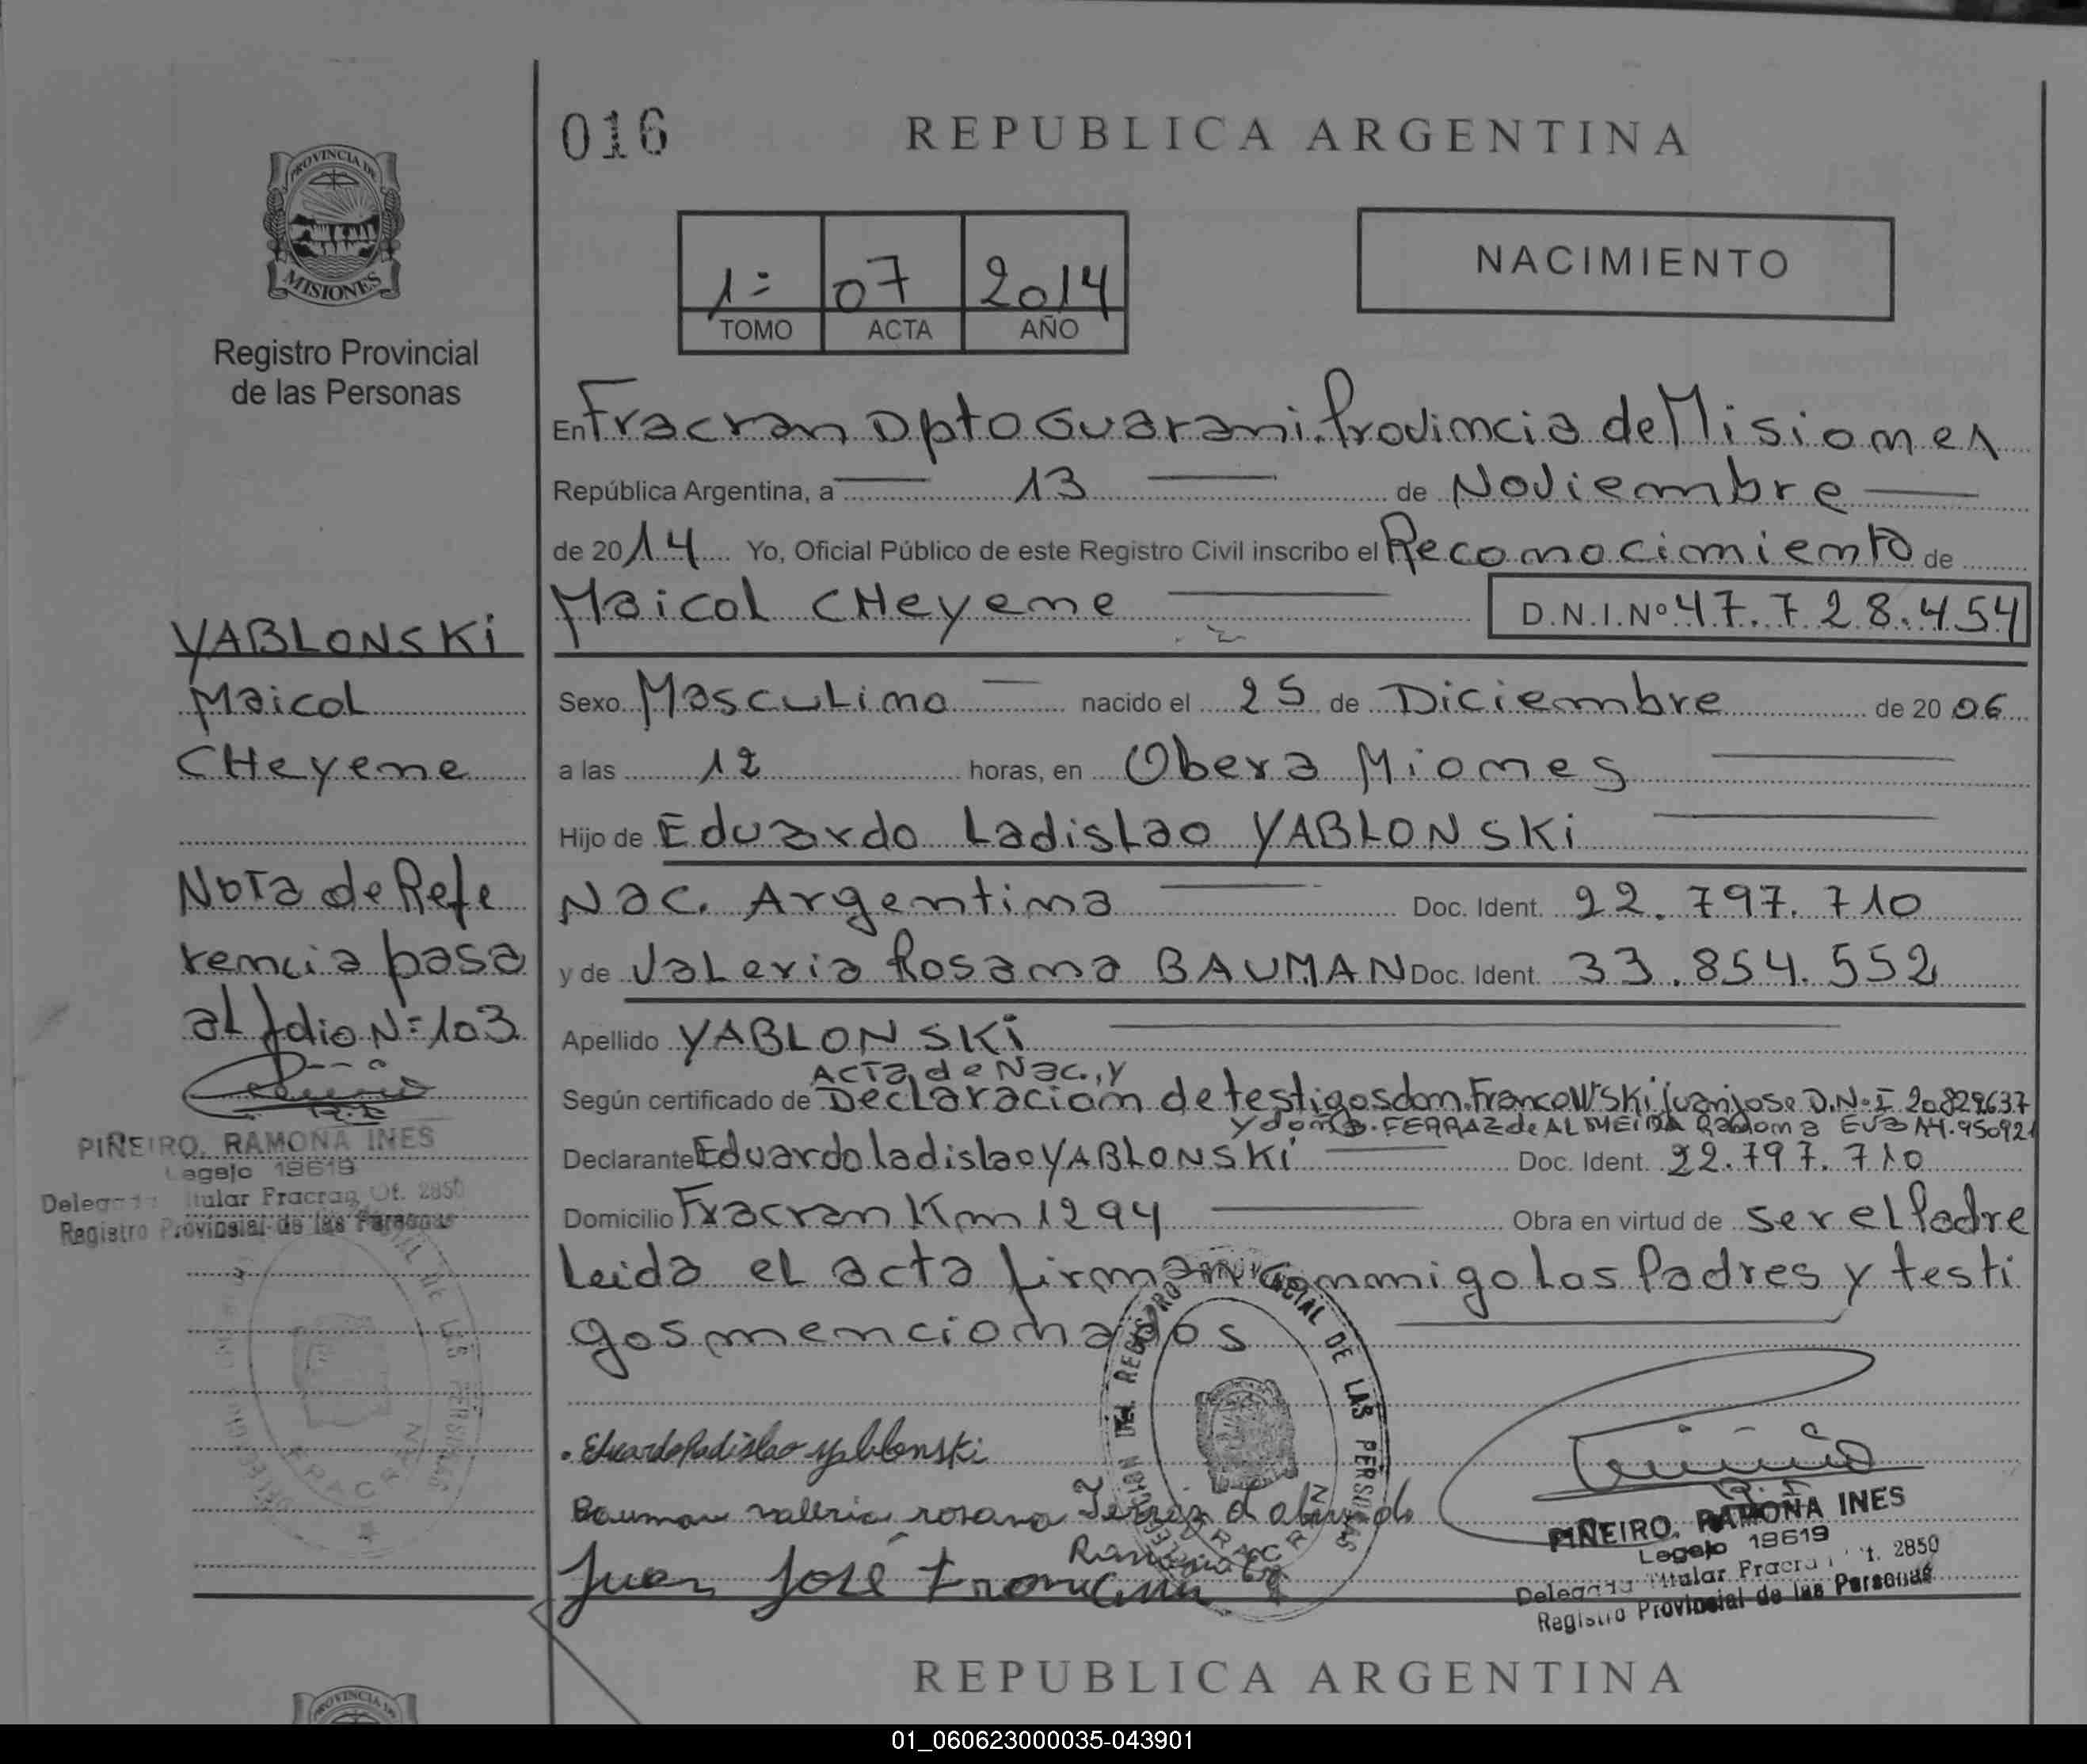 016
REPUBLICA ARGENTINA
PROVINCIA DE
MISIONES
Registro Provincial
de las Personas
1= 07 2014
TOMO ACTA AÑO
NACIMIENTO
En Fracran Dpto Guarani. Provincia de Misiones
República Argentina, a 13 de Noviembre
de 2014 Yo, Oficial Público de este Registro Civil inscribo el Reconocimiento de
Maicol CHeyene D.N.I.Nº 47.728.454
Sexo Masculino nacido el 25 de Diciembre de 2006
a las 12 horas, en Obera Miones
Hijo de Eduardo Ladislao YABLONSKi
Nac. Argentina Doc. Ident. 22.797.710
y de Valeria Rosana BAUMAN Doc. Ident. 33.854.552
Apellido YABLONSKi
Acta de Nac., y
Según certificado de Declaracion de testigos don. Francowski Juan jose D.N.I 20.829.637
y doña. FERRAZ de ALMEiDA Ramona Eva 14.950921
Declarante Eduardo ladislao YABLONSKi Doc. Ident. 22.797.710
Domicilio Fracran Km 1294 Obra en virtud de ser el Padre
Leida el acta firman conmigo los Padres y testi
gos mencionados
Eduardo Ladislao yablonski
Bauman valeria rosana
Juan José
DEL REGISTRO PROVINCIAL DE LAS PERSONAS
FRACRAN
PIÑEIRO, RAMONA INES
Legajo 19619
Delegada Titular Fracran Of. 2850
Registro Provincial de las Personas
YABLONSKi
Maicol
CHeyene
Nota de Refe
rencia pasa
al folio N=103
PIÑEIRO, RAMONA INES
Legajo 19619
Delegada Titular Fracran Of. 2850
Registro Provincial de las Personas
FRACRAN
REPUBLICA ARGENTINA
PROVINCIA
01_060623000035-043901